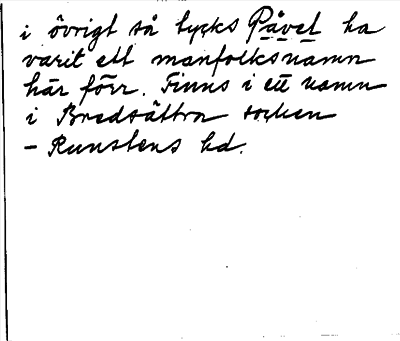 i övrigt så tycks Påvel ha
varit ett manfolksnamn
här förr. Finns i ett namn
i Bredsättra socken
– Runstens hd.